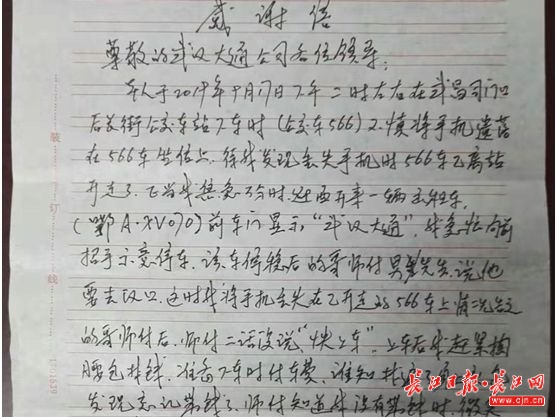 感谢信
尊敬的武汉大通公司各位领导:
本人于2019年9月17日下午二时左右在武昌司门口
后长街公交车站下车时(公交车566)不慎将手机遗落
在566车坐位上,待我发现丢失手机时566车已离站
开走了,正当我焦急万分时,迎面开来一辆出租车,
(鄂A·XV070)前车门显示“武汉大通”,我急忙向前
招手示意停车,该车停稳后的哥师付男先生,说他
要去汉口,这时我将手机丢失在已开走的566车上情况告之
的哥师付后,师付二话没说“快上车”,上车后我赶紧掏
腰包找钱,准备下车时付车费,谁知
发现忘记带钱了,师付知道我没有带钱时,
装
订
线
长江日报·长江网
cjn.cn